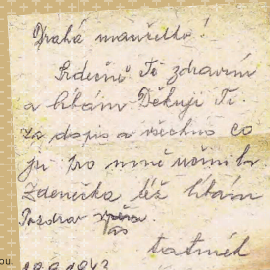 Drahá manželko!
Srdečně Tě zdravím
a líbám Děkuji Ti
za dopis a všechno co
jsi pro mně učinila
Zdenečka též líbám
Pozdrav
tatínek
1943
ou